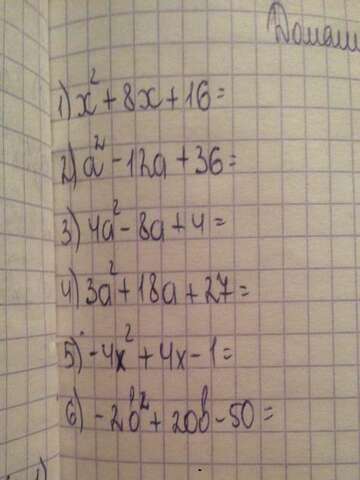 Домаш
1) x² + 8x + 16 =
2) a² - 12a + 36 =
3) 4a² - 8a + 4 =
4) 3a² + 18a + 27 =
5) -4x² + 4x - 1 =
6) -2b² + 20b - 50 =